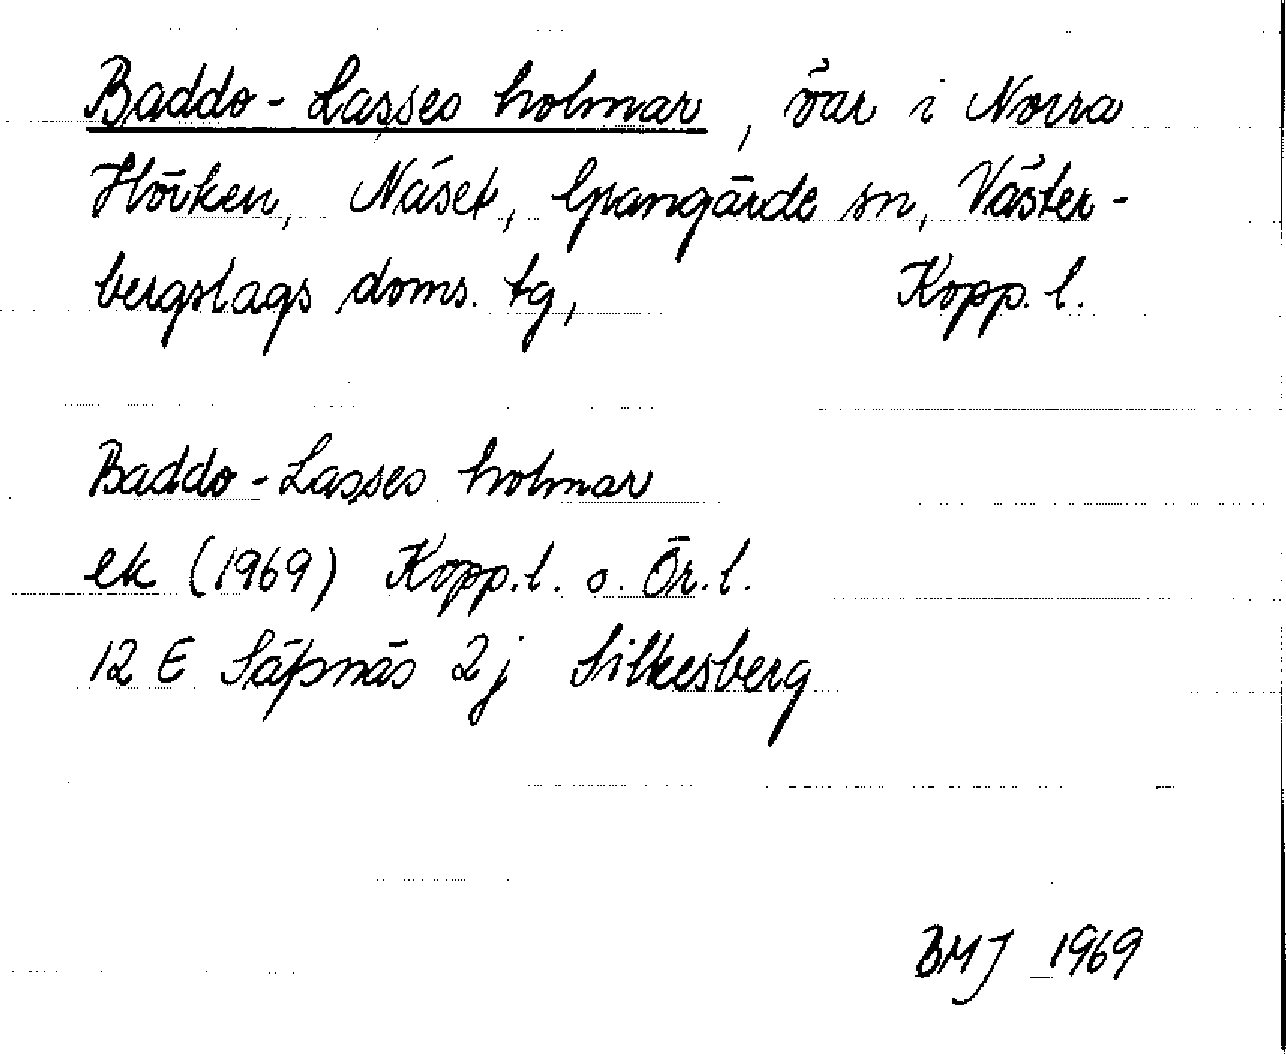 Baddo-Lasses holmar, öar i Norra
Hörken, Näset, Grangärde sn, Väster-
bergslags doms. tg, Kopp. l.
Baddo-Lasses holmar
ek (1969) Kopp.l. o. Ör.l.
12 E Säfsnäs 2j Silkesberg
BMJ 1969